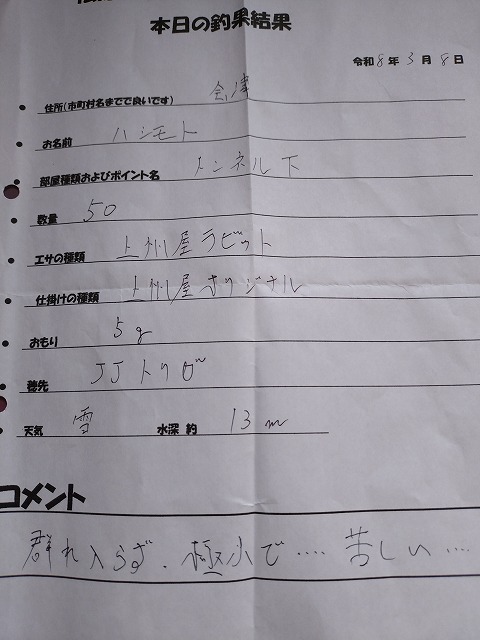 本日の釣果結果
令和 8 年 3 月 8 日
住所(市町村名までで良いです) 会津
お名前 ハシモト
部屋種類およびポイント名 トンネル下
数量 50
エサの種類 上州屋ラビット
仕掛けの種類 上州屋オリジナル
おもり 5g
穂先 JJトリガ
天気 雪 水深 約 13m
コメント
群れ入らず、極小で‥‥苦しい‥‥